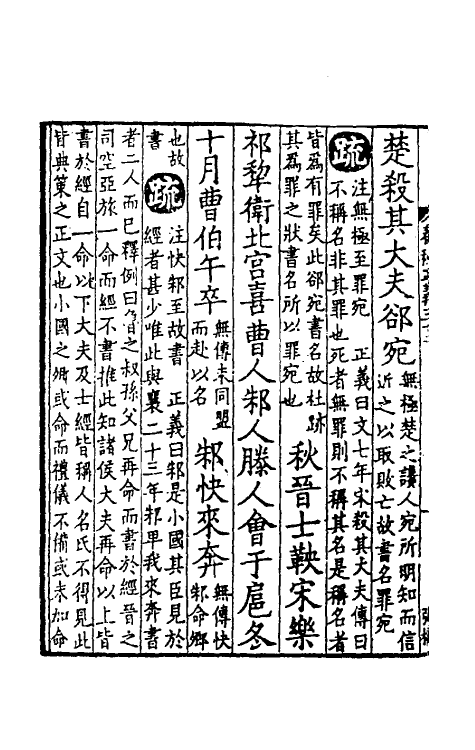 楚殺其大夫郤宛 無極楚之讒人宛所明知而信
近之以取敗亡故書名罪宛
疏 注無極至罪宛 正義曰文七年宋殺其大夫傳曰
不稱名非其罪也死者無罪則不稱其名是稱名者
皆爲有罪矣此郤宛書名故杜跡
其爲罪之狀書名所以罪宛也
秋晉士鞅宋樂
祁犂衛北宮喜曹人邾人滕人會于扈冬
十月曹伯午卒 無傳未同盟
而赴以名
邾快來奔 無傳快
邾命卿
也故
書
疏 注快邾至故書 正義曰邾是小國其臣見於
經者甚少唯此與襄二十三年邾畀我來奔書
者二人而已釋例曰魯之叔孫父兄再命而書於經晉之
司空亞旅一命而經不書推此知諸侯大夫再命以上皆
書於經自一命以下大夫及士經皆稱人名氏不得見此
皆典策之正文也小國之卿或命而禮儀不備或未加命